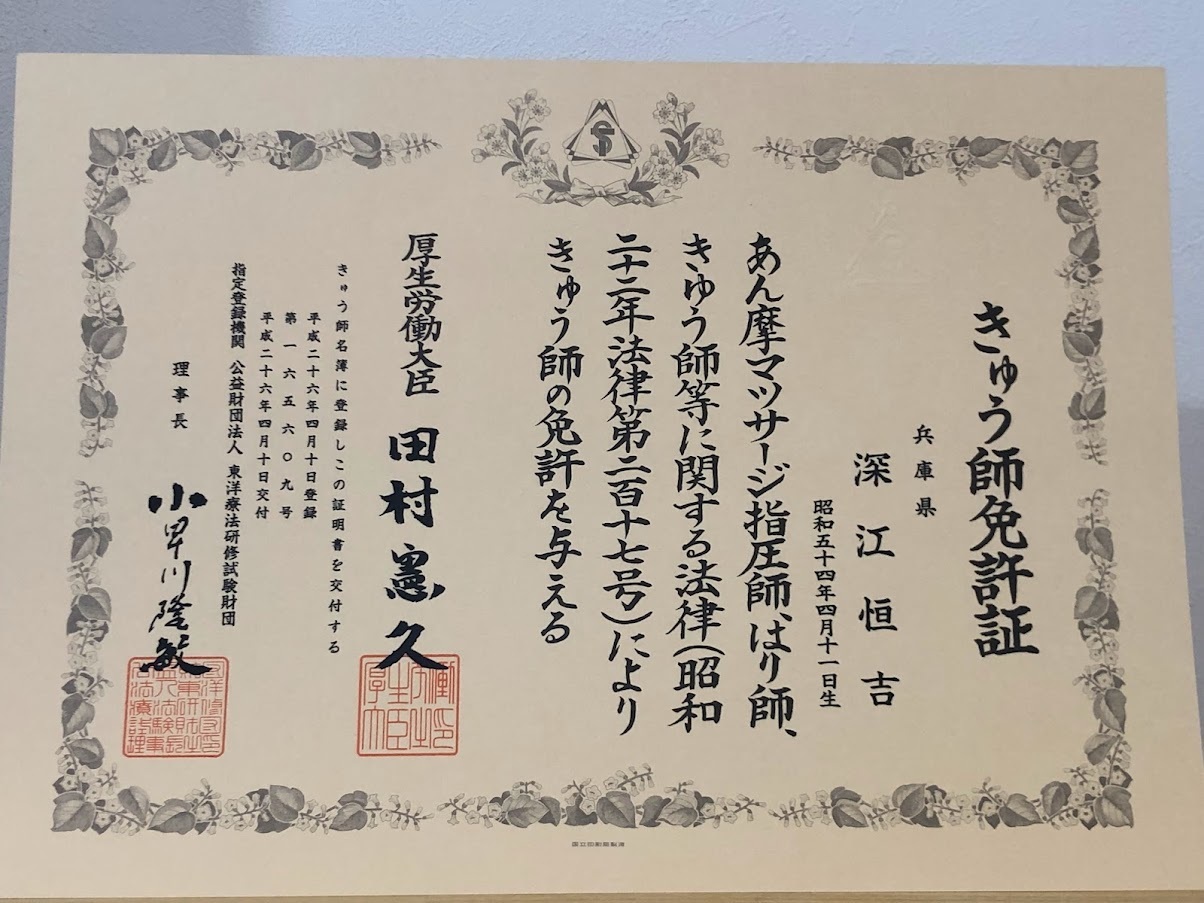 きゅう師免許証
兵庫県
深江恒吉
昭和五十四年四月十一日生
あん摩マツサージ指圧師、はり師、
きゆう師等に関する法律(昭和
二十二年法律第二百十七号)により
きゅう師の免許を与える
厚生労働大臣 田村憲久
きゅう師名簿に登録しこの証明書を交付する
平成二十六年四月十日登録
第一六五六〇九号
平成二十六年四月十日交付
指定登録機関 公益財団法人 東洋療法研修試験財団
理事長 小早川隆敏
国立印刷局製造